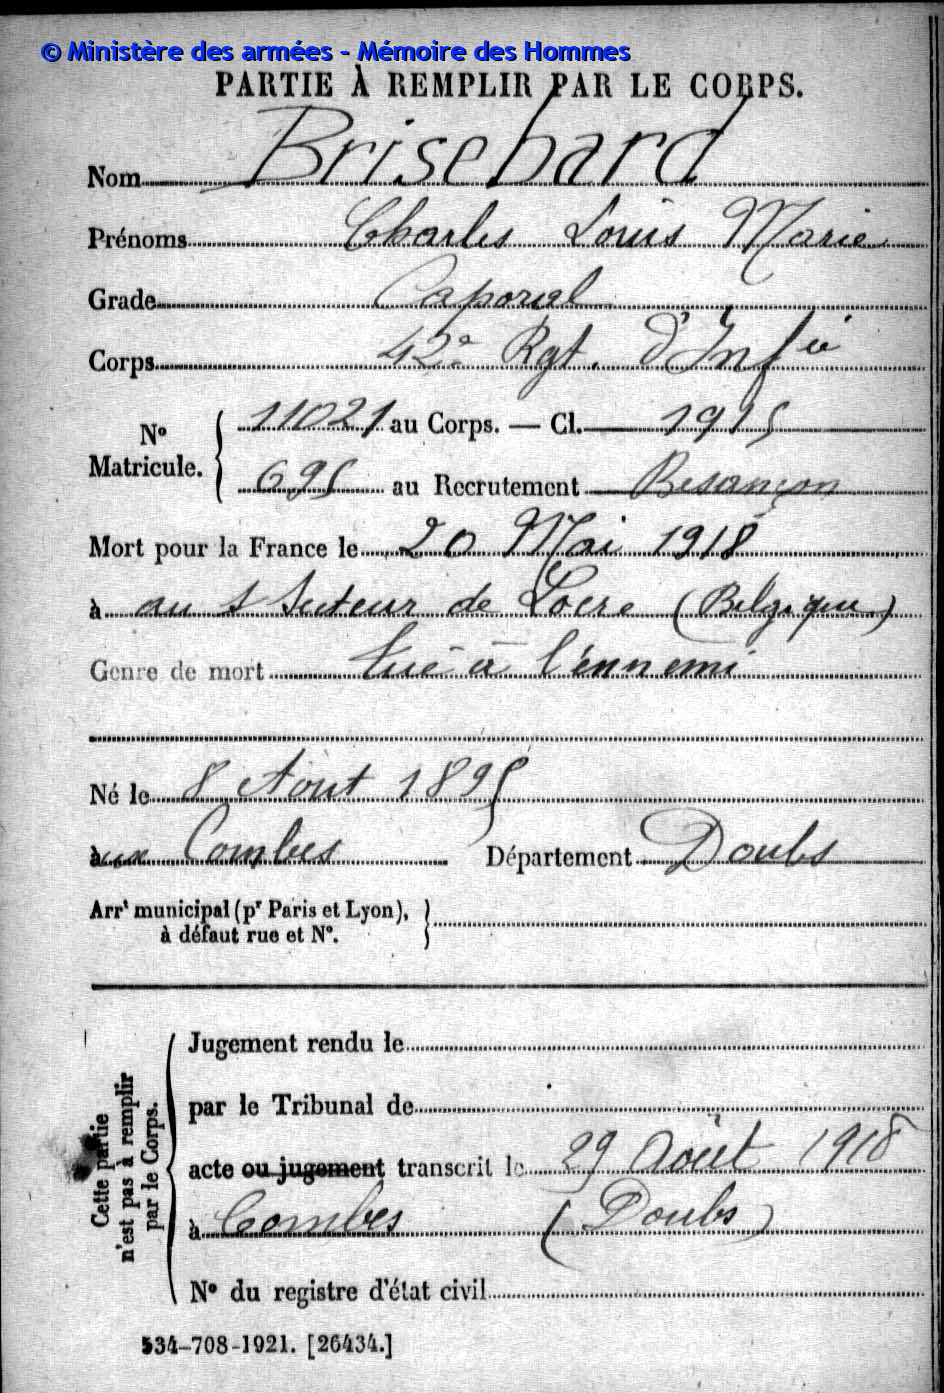 © Ministère des armées - Mémoire des Hommes
PARTIE À REMPLIR PAR LE CORPS.
Nom Brisebard
Prénoms Charles Louis Marie
Grade Caporal
Corps 42e Rgt. d'Infie
No Matricule. { 11021 au Corps. — Cl. 1915
695 au Recrutement Besançon
Mort pour la France le 20 Mai 1918
à au S Secteur de Locre (Belgique)
Genre de mort tué à l'ennemi
Né le 8 Août 1895
aux Combes Département Doubs
Arrt municipal (pr Paris et Lyon), à défaut rue et No. }
Cette partie n'est pas à remplir par le Corps.
Jugement rendu le
par le Tribunal de
acte ou jugement transcrit le 29 Août 1918
à Combes (Doubs)
No du registre d'état civil
534-708-1921. [26434.]